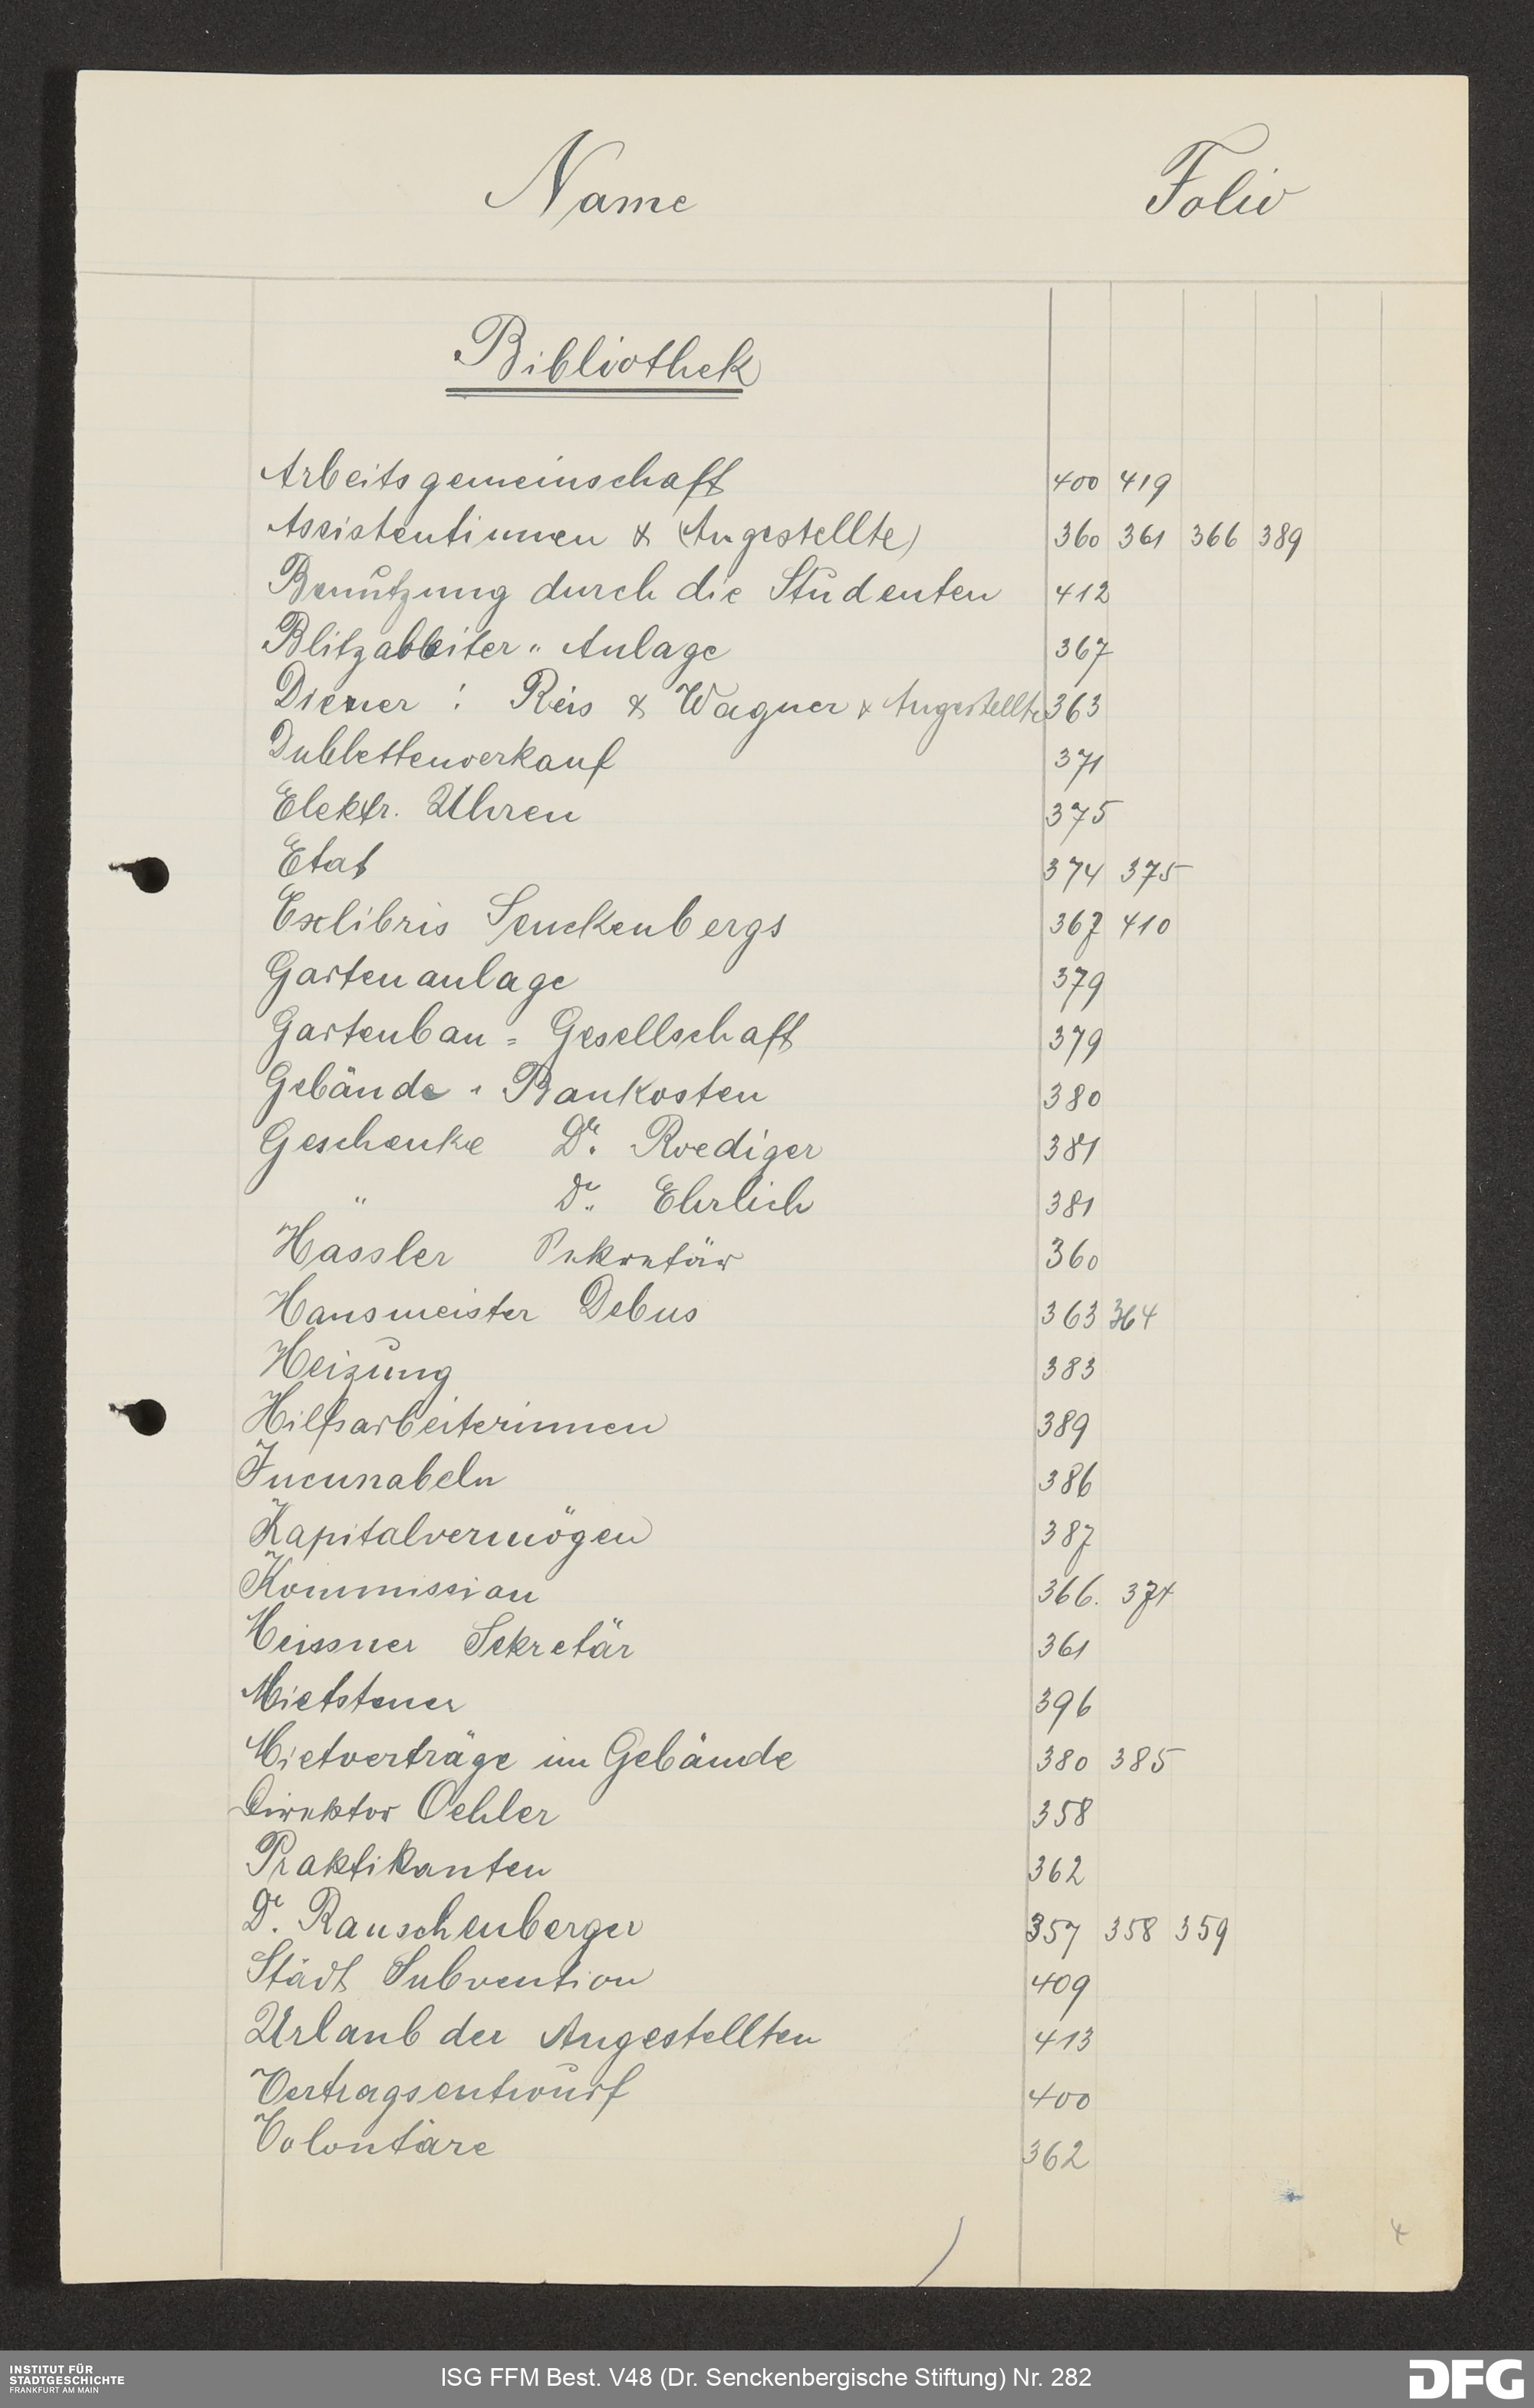 Name Folio
Bibliothek
Arbeitsgemeinschaft 400 419
Assistentinnen & (Angestellte) 360 361 366 389
Benutzung durch die Studenten 412
Blitzableiter - Anlage 367
Diener : Reis & Wagner & Angestellte 363
Dublettenverkauf 371
Elektr. Uhren 375
Etat 374 375
Exlibris Senckenbergs 367 410
Gartenanlage 379
Gartenbau = Gesellschaft 379
Gebäude - Baukosten 380
Geschenke Dr. Roediger 381
" Dr. Ehrlich 381
Hassler Sekretär 360
Hausmeister Debus 363 364
Heizung 383
Hilfsarbeiterinnen 389
Incunabeln 386
Kapitalvermögen 387
Kommission 366. 374
Meissner Sekretär 361
Mietsteuer 396
Mietverträge im Gebäude 380 385
Direktor Oehler 358
Praktikanten 362
Dr. Rauschenberger 357 358 359
Städt Subvention 409
Urlaub der Angestellten 413
Vertragsentwurf 400
Volontäre 362
4
INSTITUT FÜR
STADTGESCHICHTE
FRANKFURT AM MAIN
ISG FFM Best. V48 (Dr. Senckenbergische Stiftung) Nr. 282
DFG